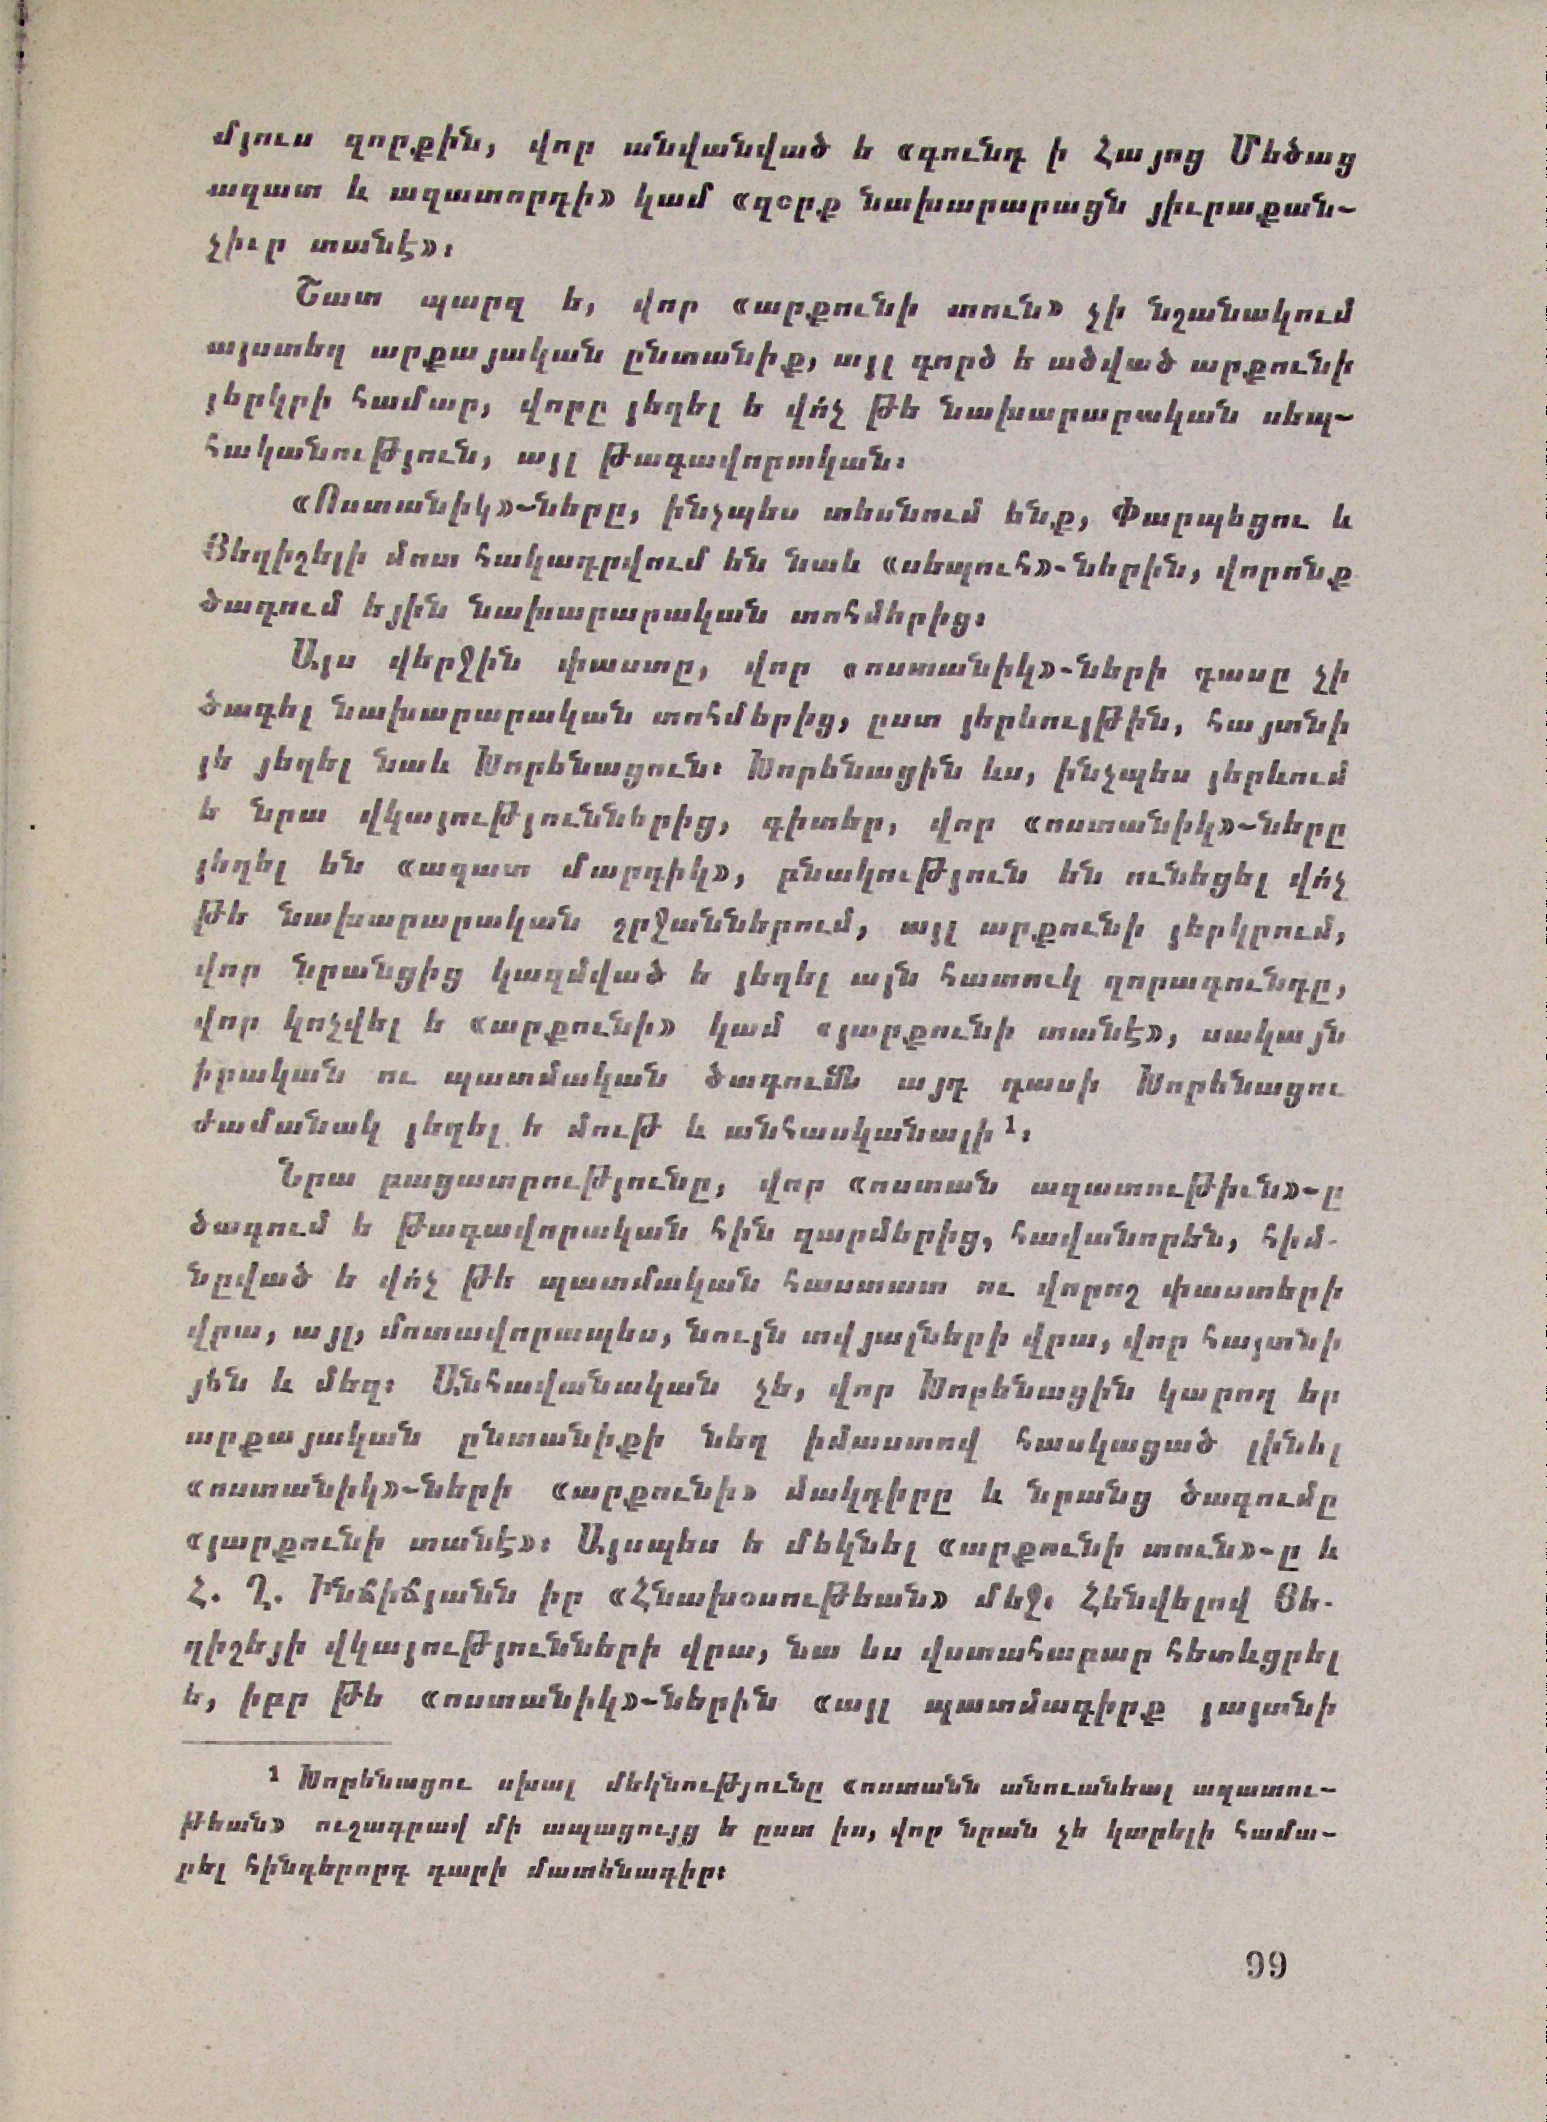 մյուս զորքին, վոր անվանված ե «գունդ ի Հայոց Մեծաց
ազատ և ազատորդի» կամ «զօրք նախարարացն յիւրաքան-
չիւր տանէ»։
Շատ պարզ ե, վոր «արքունի տուն» չի նշանակում
այստեղ արքայական ընտանիք, այլ գործ ե ածված արքունի
յերկրի համար, վորը յեղել ե վո՛չ թե նախարարական սեպ-
հականություն, այլ թագավորական։
«Ոստանիկ»-ները, ինչպես տեսնում ենք, Փարպեցու և
Յեղիշեյի մոտ հակադրվում են նաև «սեպուհ»-ներին, վորոնք
ծագում եյին նախարարական տոհմերից։
Այս վերջին փաստը, վոր «ոստանիկ»-ների դասը չի
ծագել նախարարական տոհմերից, ըստ յերևույթին, հայտնի
յե յեղել նաև Խորենացուն։ Խորենացին ևս, ինչպես յերևում
ե նրա վկայություններից, գիտեր, վոր «ոստանիկ»-ները
յեղել են «ազատ մարդիկ», բնակություն են ունեցել վո՛չ
թե նախարարական շրջաններում, այլ արքունի յերկրում,
վոր նրանցից կազմված ե յեղել այն հատուկ զորագունդը,
վոր կոչվել ե «արքունի» կամ «յարքունի տանէ», սակայն
իրական ու պատմական ծագումն այդ դասի Խորենացու
ժամանակ յեղել ե մութ և անհասկանալի ¹։
Նրա բացատրությունը, վոր «ոստան ազատութիւն»-ը
ծագում ե թագավորական հին զարմերից, հավանորեն, հիմ-
նըված ե վո՛չ թե պատմական հաստատ ու վորոշ փաստերի
վրա, այլ, մոտավորապես, նույն տվյալների վրա, վոր հայտնի
յեն և մեզ։ Անհավանական չե, վոր Խորենացին կարող եր
արքայական ընտանիքի նեղ իմաստով հասկացած լինել
«ոստանիկ»-ների «արքունի» մակդիրը և նրանց ծագումը
«յարքունի տանէ»։ Այսպես ե մեկնել «արքունի տուն»-ը և
Հ. Ղ. Ինճիճյանն իր «Հնախօսութեան» մեջ։ Հենվելով Յե-
ղիշեյի վկայությունների վրա, նա ևս վստահաբար հետևցրել
ե, իբր թե «ոստանիկ»-ներին «այլ պատմագիրք յայտնի
¹ Խորենացու սխալ մեկնությունը «ոստանն անուանեալ ազատու-
թեան» ուշագրավ մի ապացույց ե ըստ իս, վոր նրան չե կարելի համա-
րել հինգերորդ դարի մատենագիր։
99